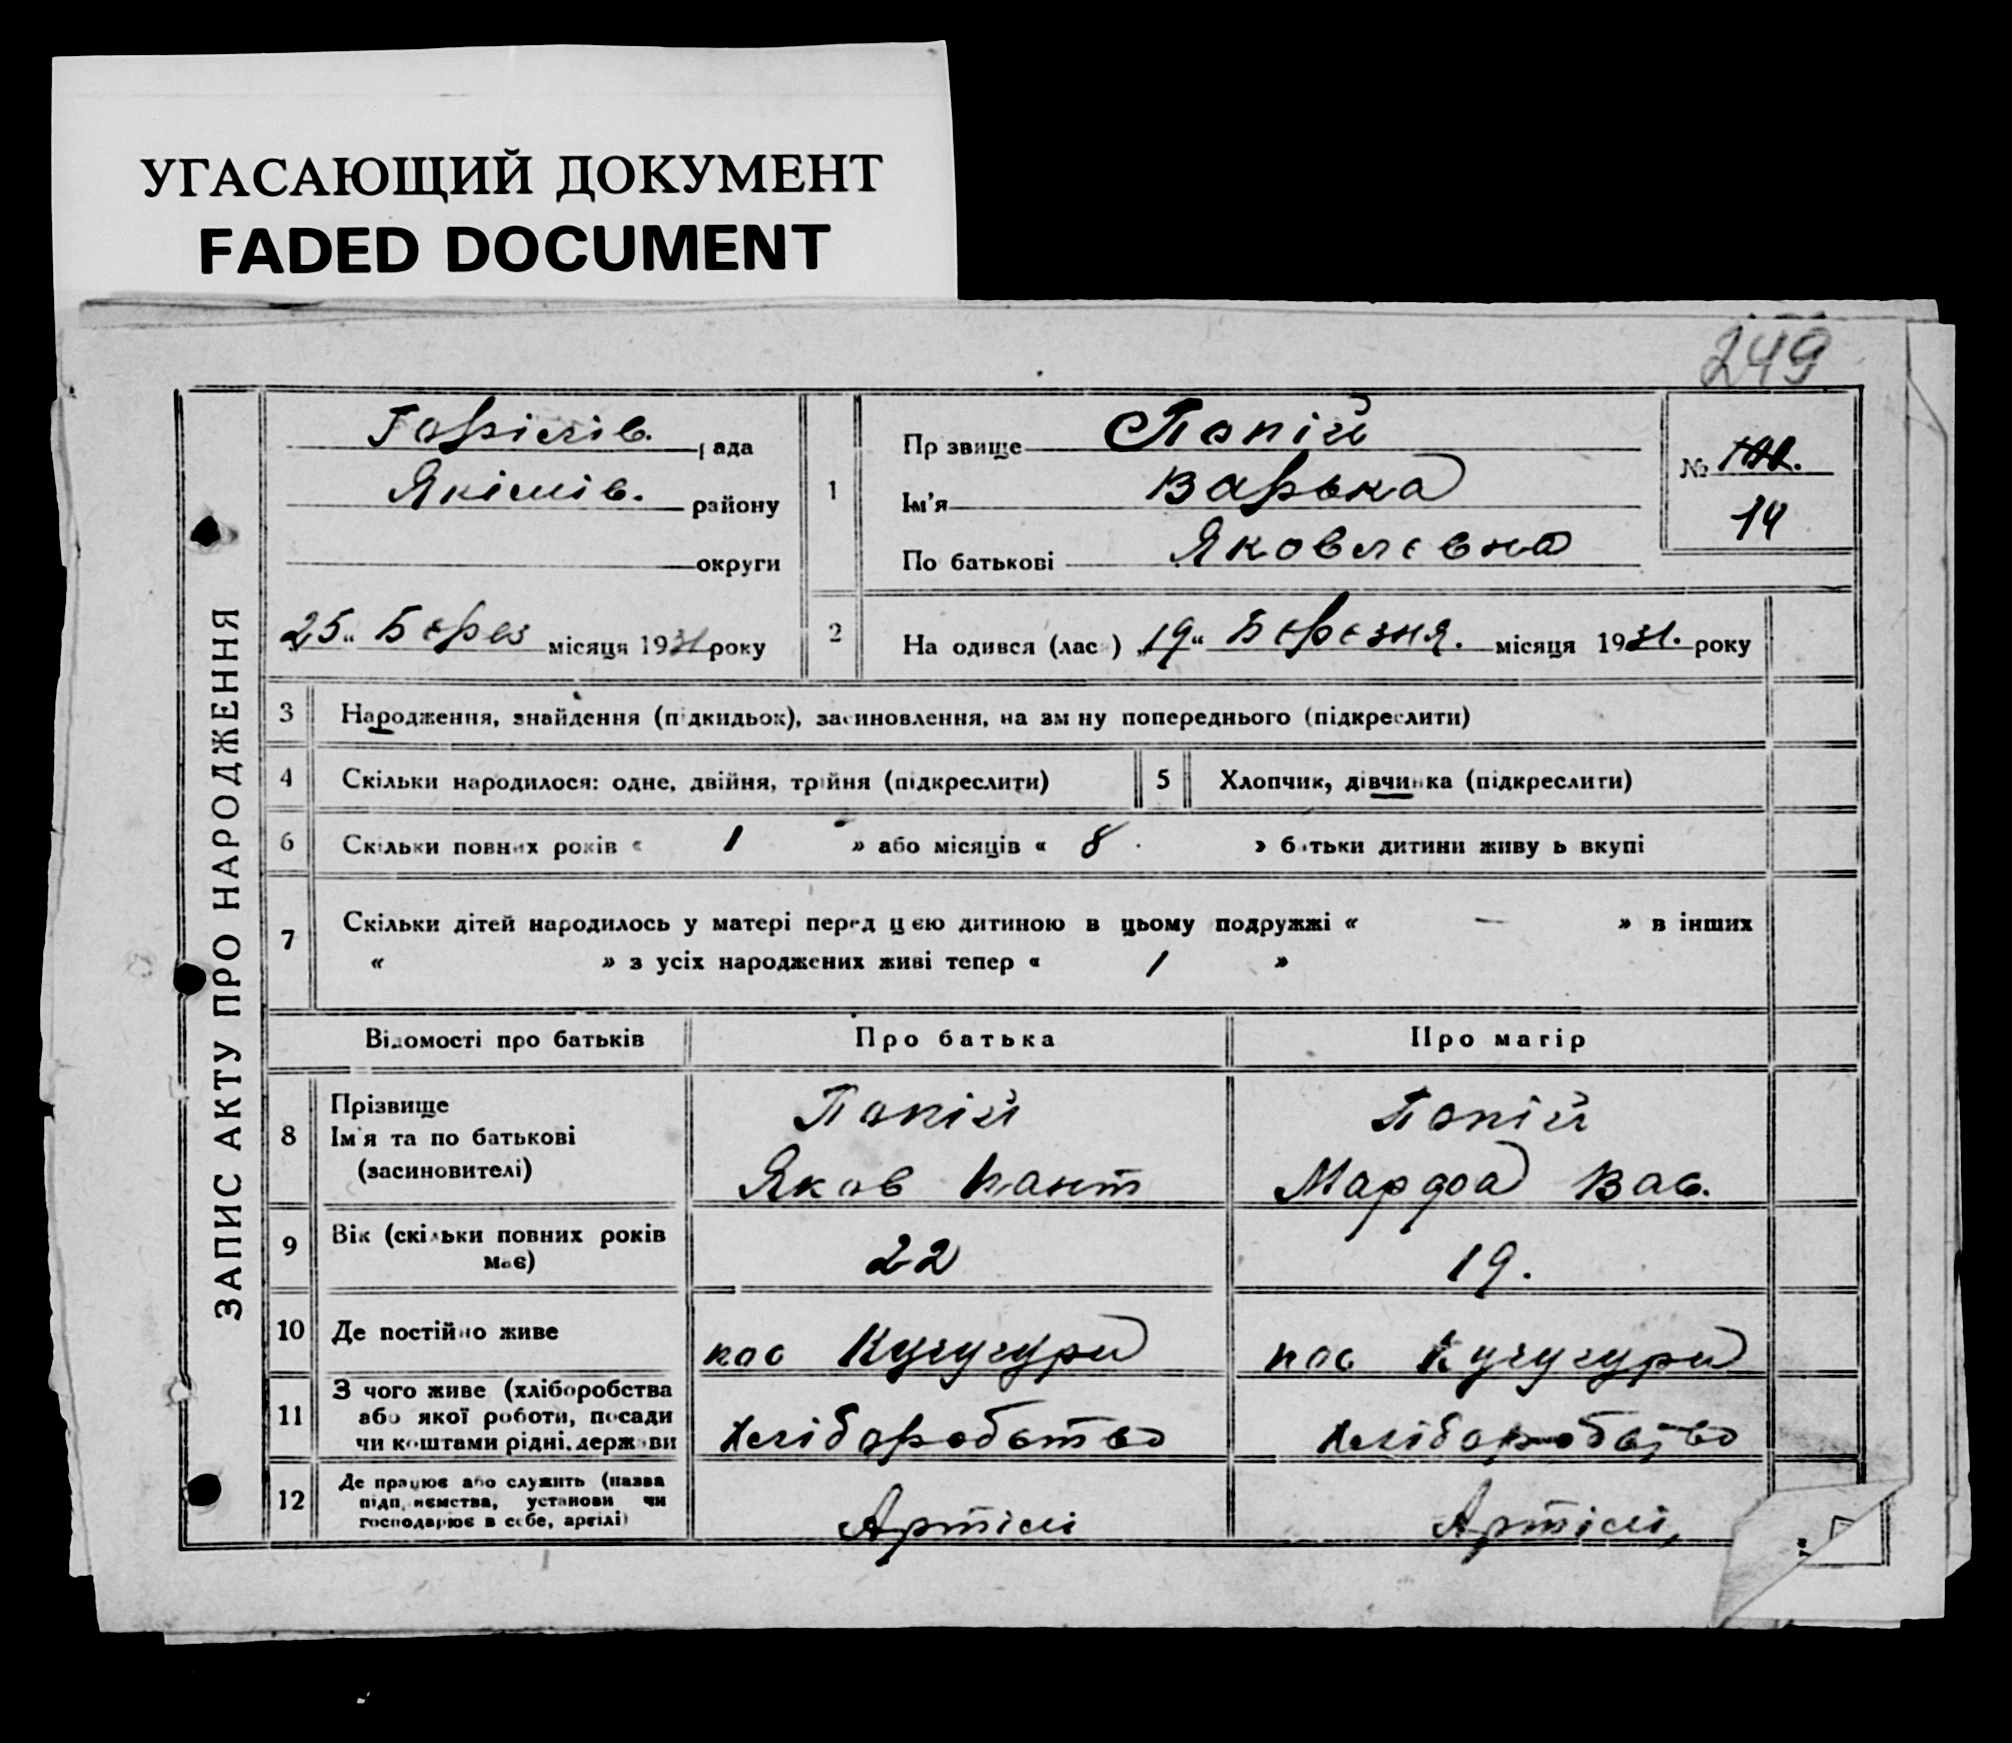 УГАСАЮЩИЙ ДОКУМЕНТ
FADED DOCUMENT
249
ЗАПИС АКТУ ПРО НАРОДЖЕННЯ
рада
Якімів. району
округи
25 „ Берез місяця 1931 року
1
Прізвище Папій
Ім'я Варька
По батькові Яковлєвна
№
14
2 На одився (лас ) „19“ Березня. місяця 1931. року
3 Народження, знайдення (підкидьок), засиновлення, на зміну попереднього (підкреслити)
4 Скільки народилося: одне, двійня, трійня (підкреслити) 5 Хлопчик, дівчинка (підкреслити)
6 Скільки повних років « 1 » або місяців « 8 . » батьки дитини живуть вкупі
7 Скільки дітей народилось у матері перед цією дитиною в цьому подружжі « — » в інших
« » з усіх народжених живі тепер « 1 »
Відомості про батьків Про батька Про матір
8 Прізвище
Ім'я та по батькові
(засиновителі)
Папій
Яков Пант
Папій
Марфа Вас.
9 Вік (скільки повних років
має)
22 19.
10 Де постійно живе пос Кучугури пос Кучугури
11 З чого живе (хліборобства
або якої роботи, посади
чи коштами рідні, держави
Хліборобство Хліборобство
12 Де працює або служить (назва
підприємства, установи чи
господарює в себе, артілі)
Артілі Артілі,